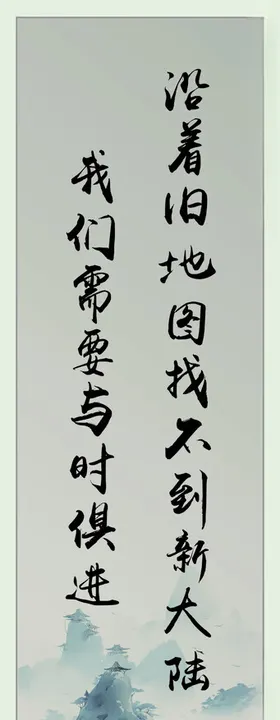 沿着旧地图找不到新大陆
我们需要与时俱进